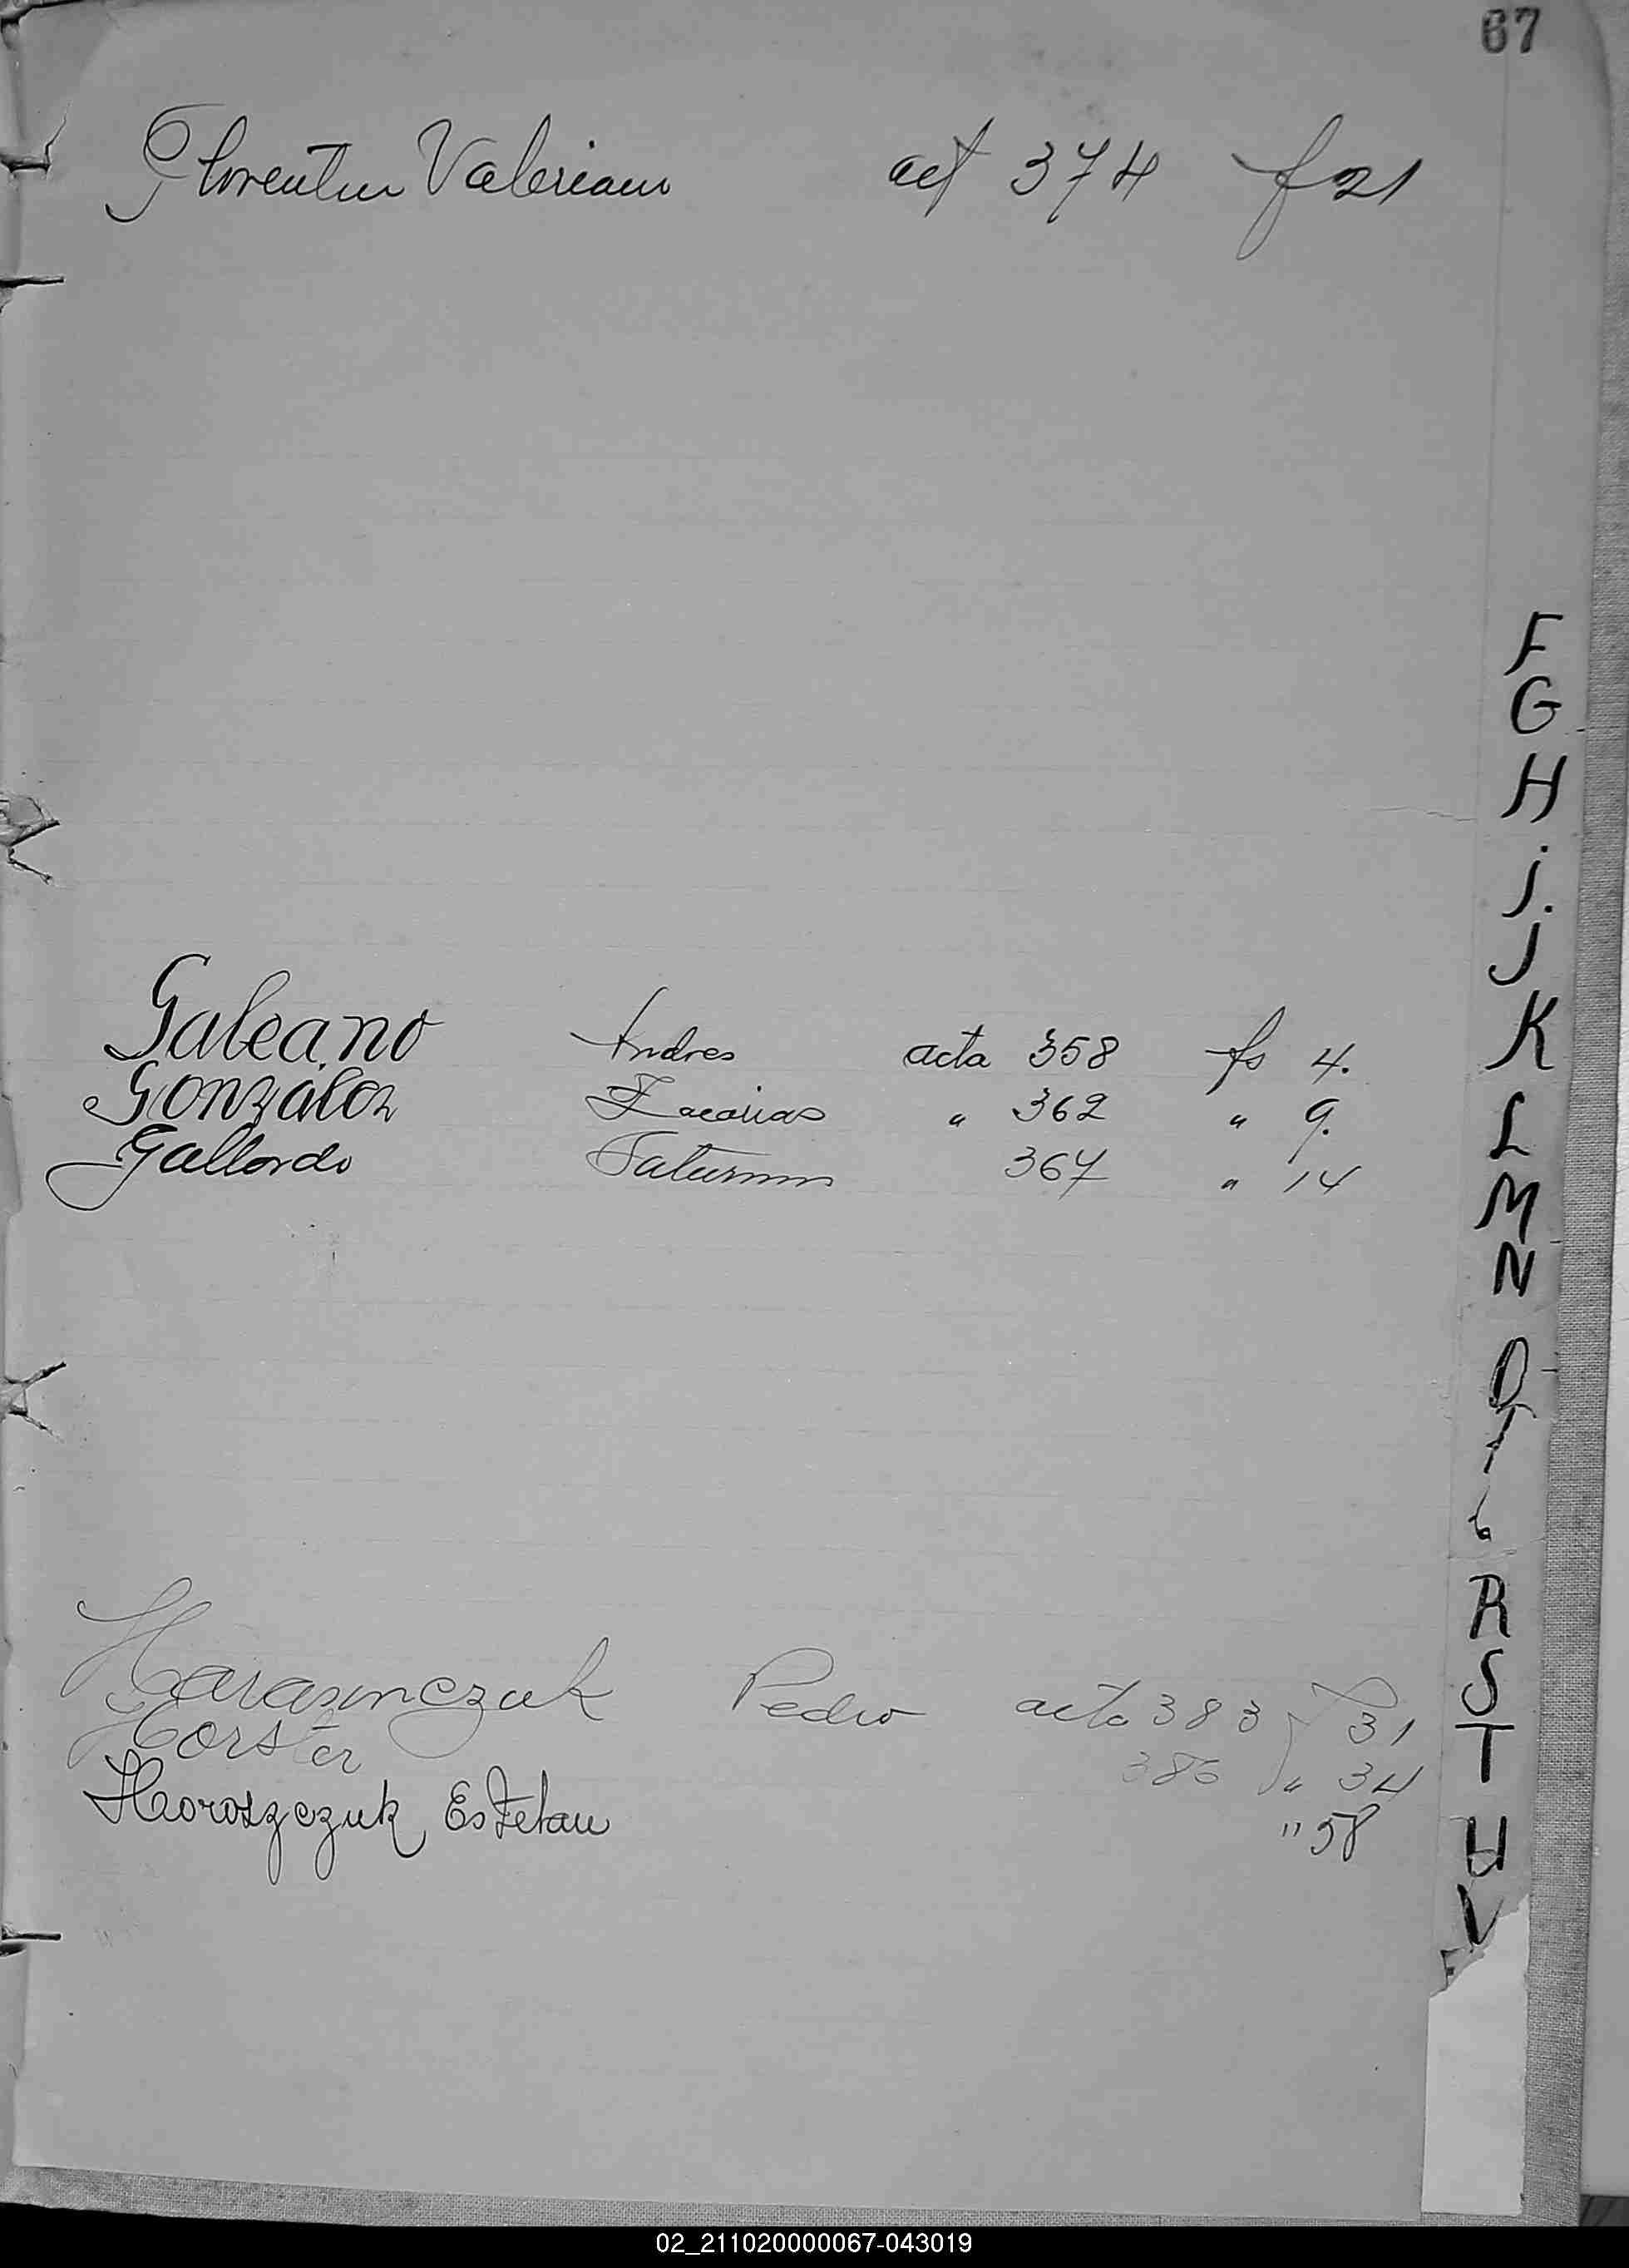 67
Florentin Valeriano act 374 f 21
F
G
H
j.
J
K
L
M
N
R
S
T
U
V
Galeano Andres acta 358 fs 4.
González Zacarias " 362 " 9.
Gallardo Saturnino 367 " 14
Harasimczuk Pedro acta 383 f 31
Horster 386 " 34
Horoszczuk Esteban " 58
02_211020000067-043019